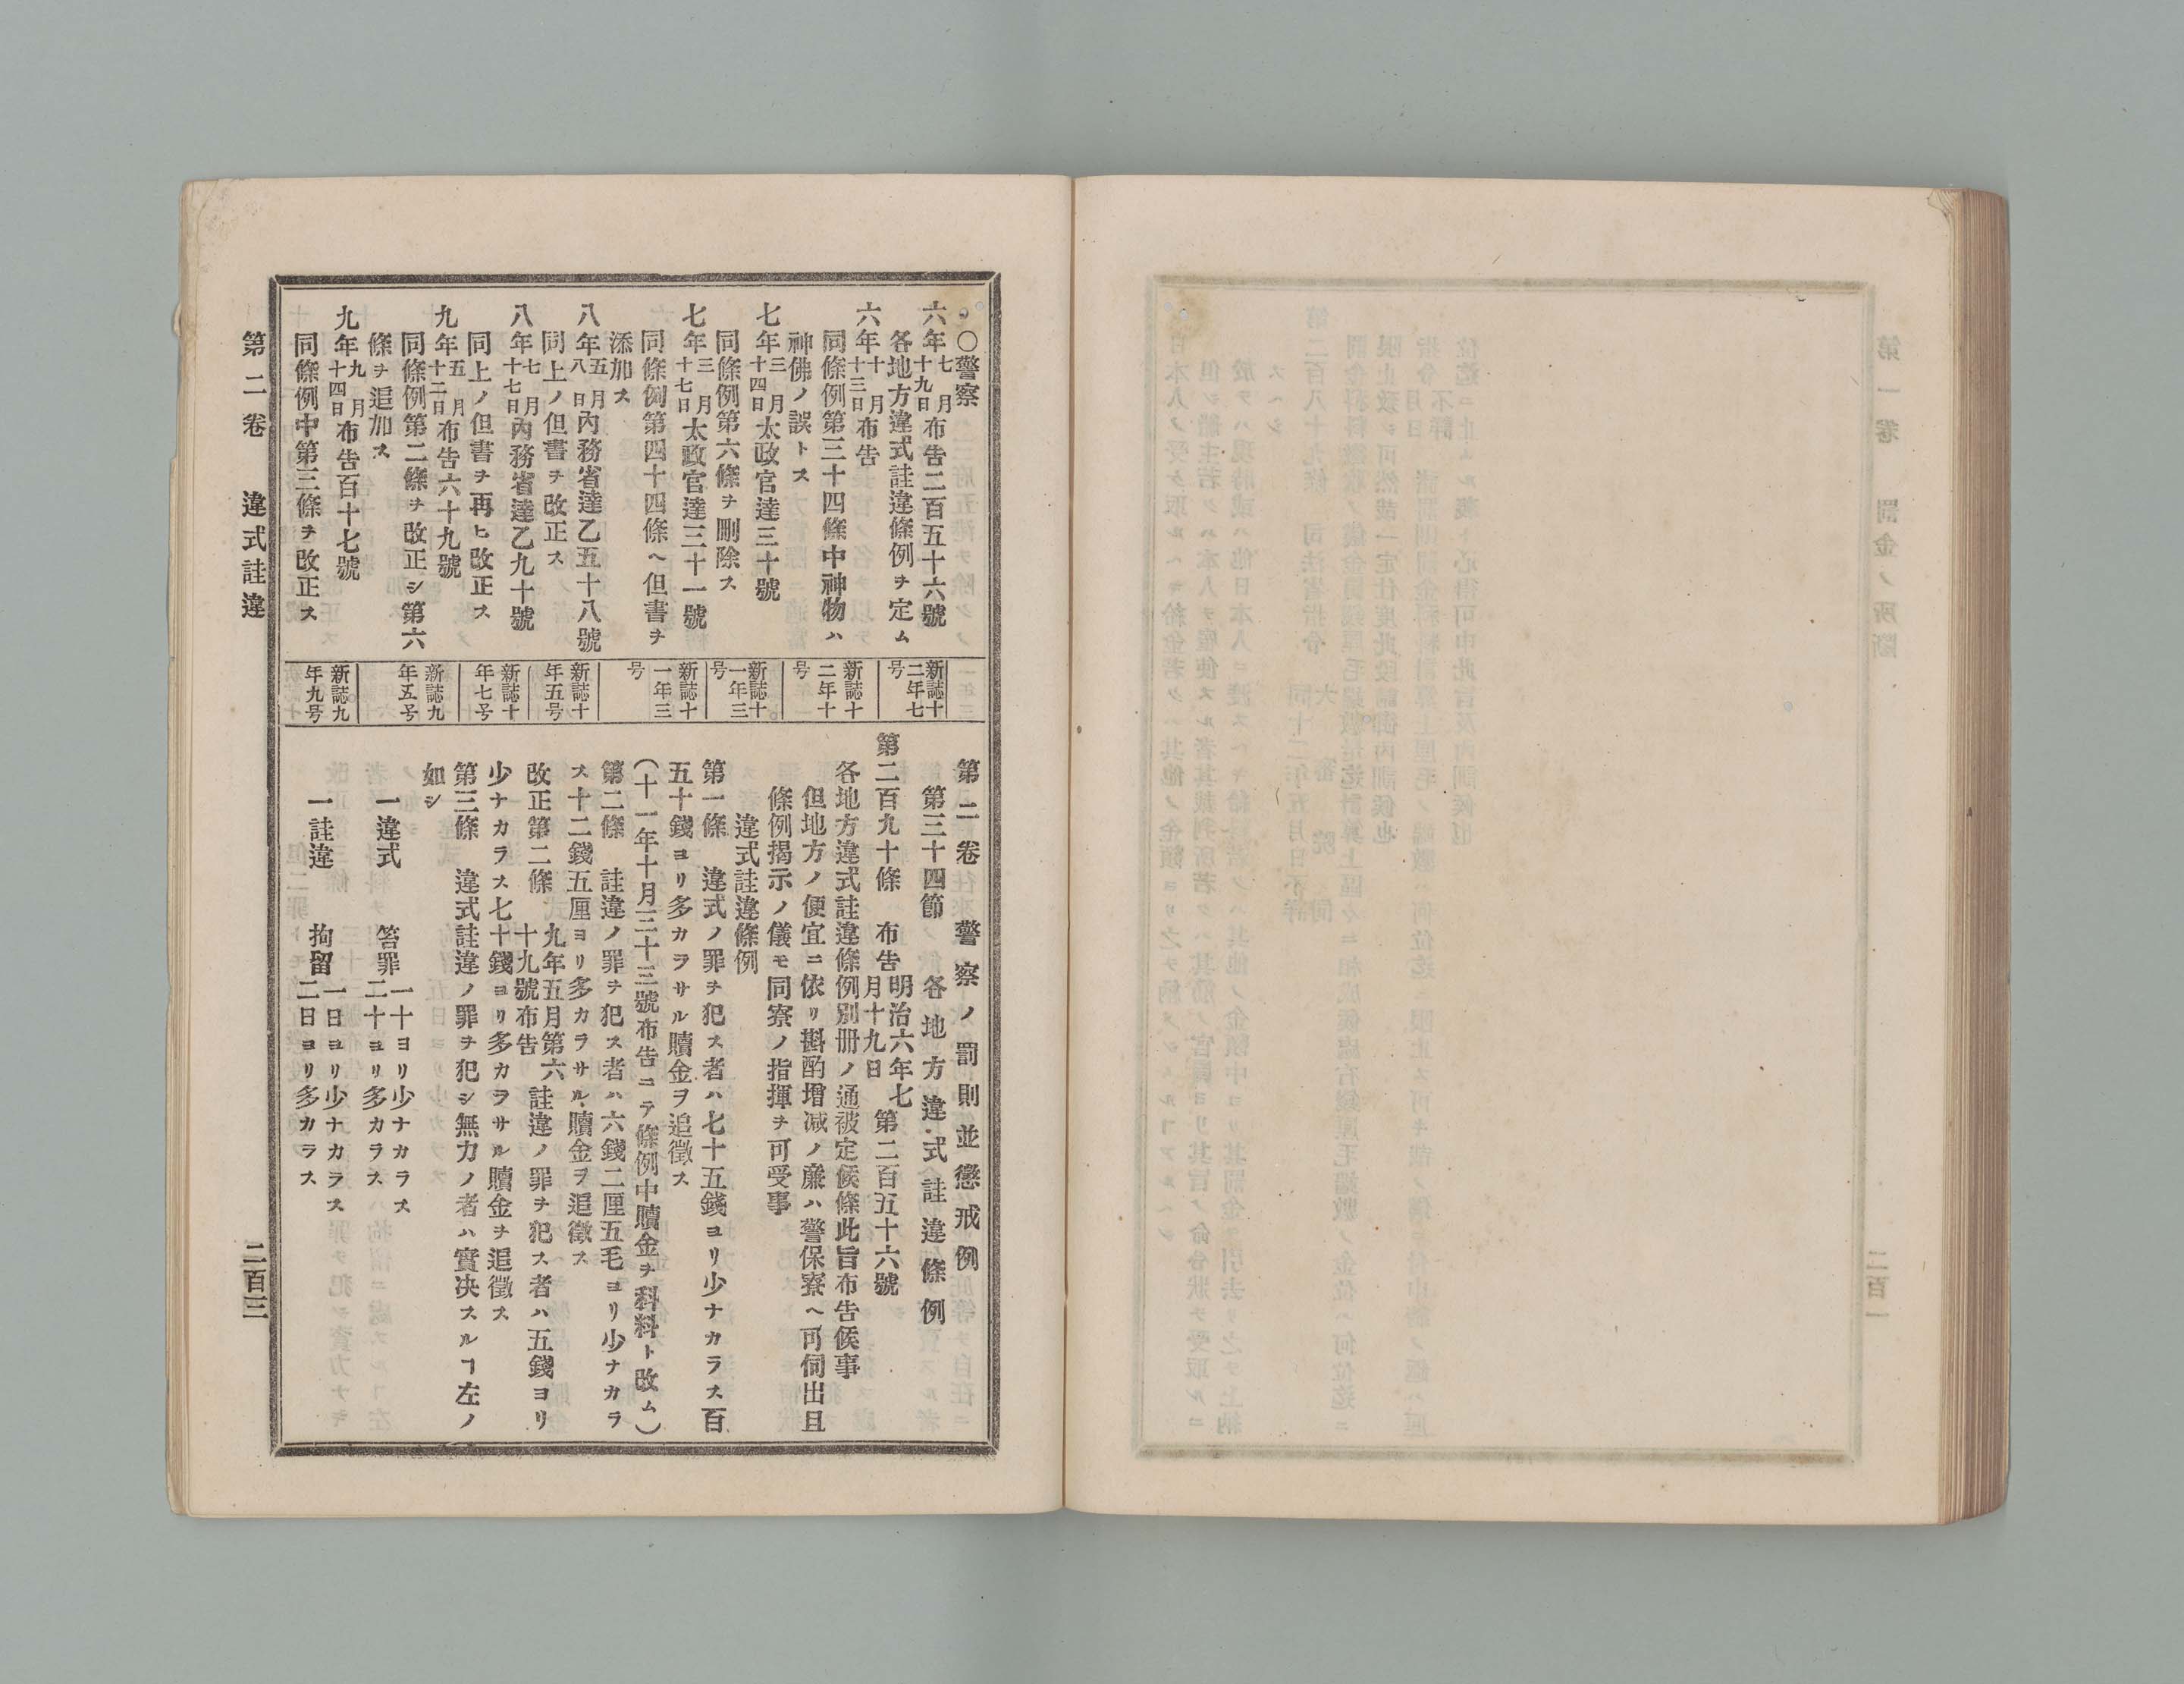 〇警察
六年七月十九日布告二百五十六號
各地方違式詿違條例ヲ定ム
六年十月十三日布告
同條例第三十四條中神物ハ
神佛ノ誤トス
七年三月十四日太政官達三十號
同條例第六條ヲ刪除ス
七年三月十七日太政官達三十一號
同條例第四十四條ヘ但書ヲ
添加ス
八年五月八日內務省達乙五十八號
同上ノ但書ヲ改正ス
八年七月十七日內務省達乙九十號
同上ノ但書ヲ再ヒ改正ス
九年五月十二日布告六十九號
同條例第二條ヲ改正シ第六
條ヲ追加ス
九年九月十四日布告百十七號
同條例中第三條ヲ改正ス
新誌十二年七号
新誌十二年十号
新誌十一年三号
新誌十一年三号
新誌十年五号
新誌十年七号
新誌九年五号
新誌九年九号
第二卷　警察ノ罰則並懲戒例
第三十四節　各地方違式詿違條例
第二百九十條　布告明治六年七月十九日第二百五十六號
各地方違式詿違條例別冊ノ通被定候條此旨布告候事
但地方ノ便宜ニ依リ斟酌增减ノ廉ハ警保寮ヘ可伺出且
條例揭示ノ儀モ同寮ノ指揮ヲ可受事
違式詿違條例
第一條　違式ノ罪ヲ犯ス者ハ七十五錢ヨリ少ナカラス百
五十錢ヨリ多カラサル贖金ヲ追徵ス
(十一年十月三十三號布告ニテ條例中贖金ヲ科料ト改ム)
第二條　詿違ノ罪ヲ犯ス者ハ六錢二厘五毛ヨリ少ナカラ
ス十二錢五厘ヨリ多カラサル贖金ヲ追徵ス
改正第二條　九年五月第六十九號布告　詿違ノ罪ヲ犯ス者ハ五錢ヨリ
少ナカラス七十錢ヨリ多カラサル贖金ヲ追徵ス
第三條　違式詿違ノ罪ヲ犯シ無力ノ者ハ實決スルヿ左ノ
如シ
一違式　笞罪　一十ヨリ少ナカラス
二十ヨリ多カラス
一詿違　拘留　一日ヨリ少ナカラス
二日ヨリ多カラス
第二卷　違式詿違　二百三